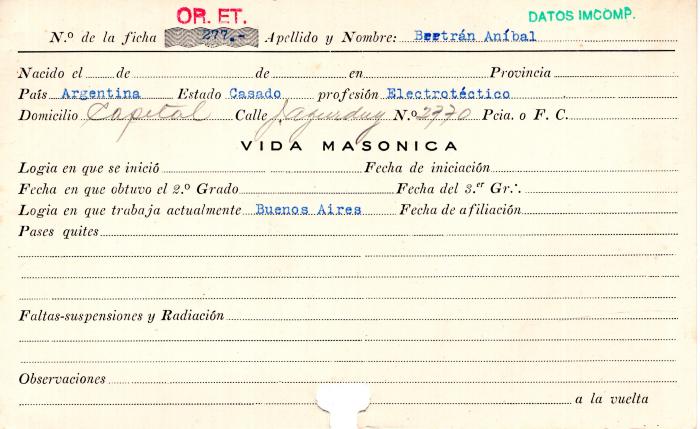 OR. ET.
DATOS IMCOMP.
N.º de la ficha 277.- Apellido y Nombre: Bertrán Aníbal
Nacido el de de en Provincia
País Argentina Estado Casado profesión Electrotéctico
Domicilio Capital Calle N.º 2770 Pcia. o F. C.
VIDA MASONICA
Logia en que se inició Fecha de iniciación
Fecha en que obtuvo el 2.º Grado Fecha del 3.er Gr∴
Logia en que trabaja actualmente Buenos Aires Fecha de afiliación
Pases quites
Faltas-suspensiones y Radiación
Observaciones
a la vuelta